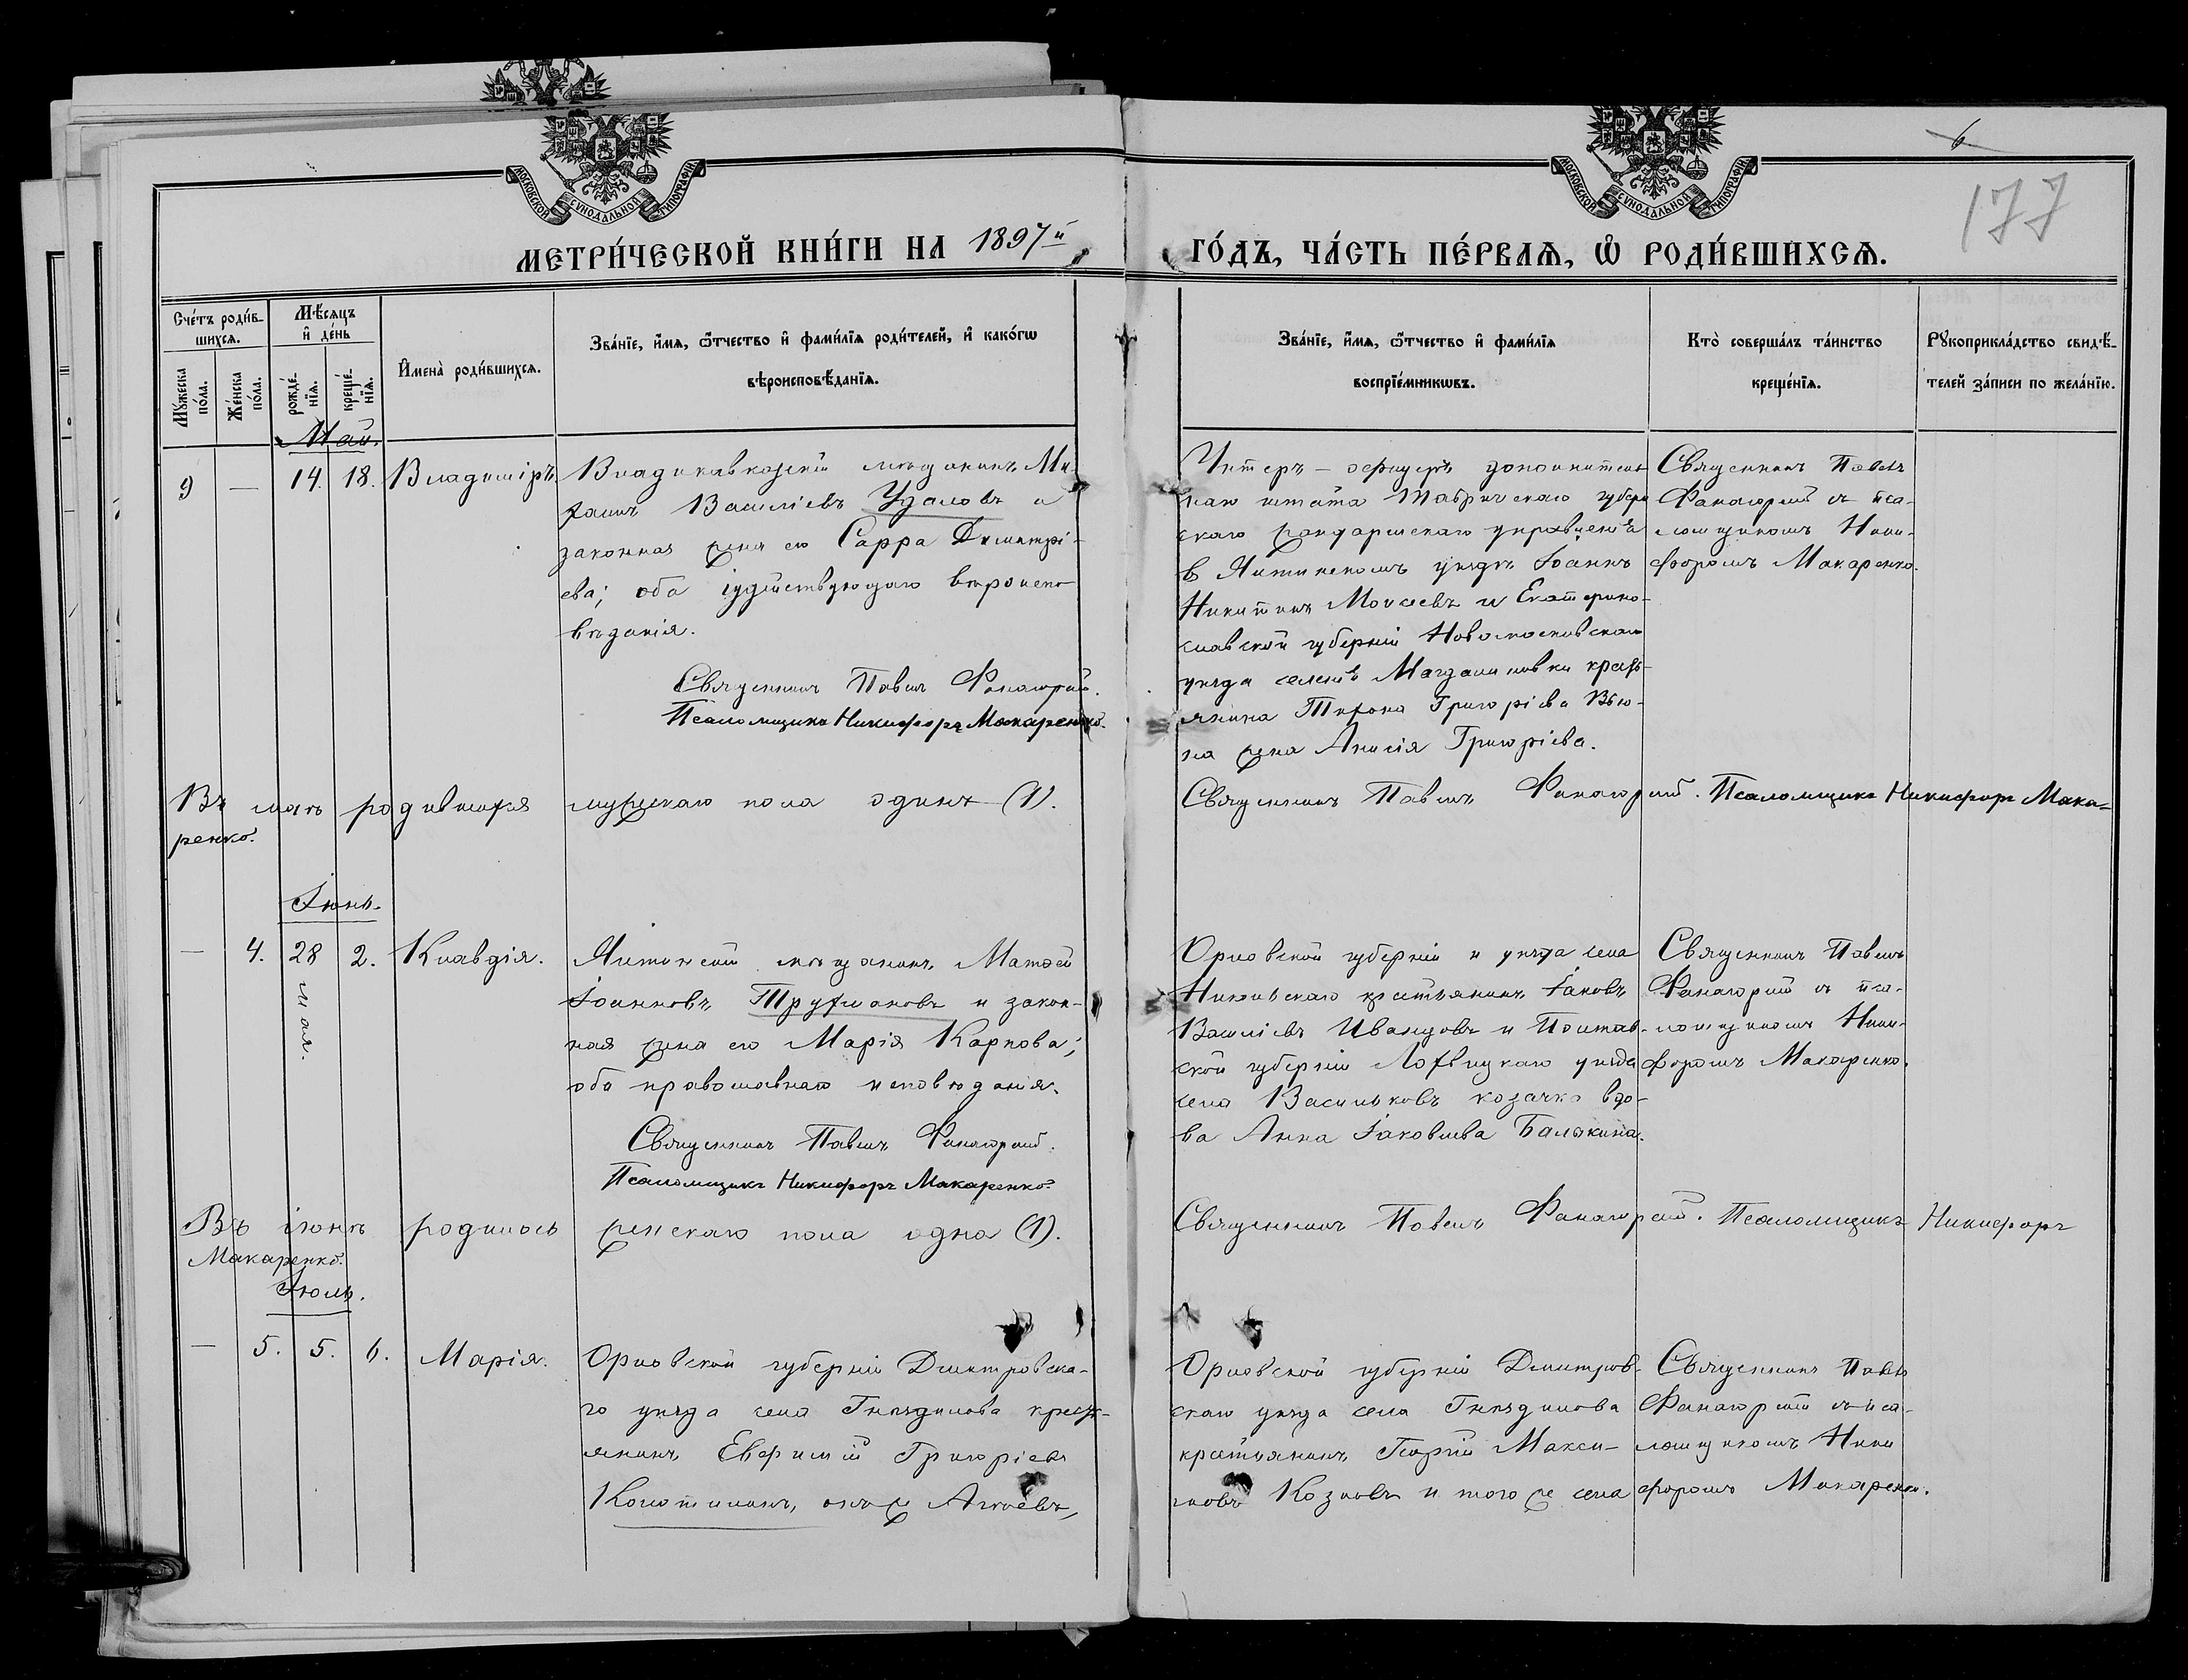 МОСКОВСКОЙ СѴНОДАЛЬНОЙ ТИПОГРАФІИ
МОСКОВСКОЙ СѴНОДАЛЬНОЙ ТИПОГРАФІИ
6
177
МЕТРИ́ЧЕСКОЙ КНИ́ГИ НА 1897й
ГО́ДЪ, ЧА́СТЬ ПЕ́РВАѦ, Ѡ҆ РОДИ́ВШИХСѦ.
Сче́тъ роди́в-
шихсѧ.
Мꙋ́жеска по́ла.
Же́нска по́ла.
Мѣ́сѧцъ и҆ де́нь
рожде́-нїѧ.
креще́-нїѧ.
И҆мена̀ роди́вшихсѧ.
Зва́нїе, и҆́мѧ, ѻ҆́тчество и҆ фами́лїѧ роди́телей, и҆ како́гѡ
вѣроисповѣ́данїѧ.
Зва́нїе, и҆́мѧ, ѻ҆́тчество и҆ фами́лїѧ
воспрїе́мникѡвъ.
Кто̀ соверша́лъ та́инство
креще́нїѧ.
Рꙋкоприкла́дство свидѣ́-
телей за́писи по жела́нїю.
Май.
9 — 14. 18. Владиміръ.
Владикавказскій мѣщанинъ Ми-
хаилъ Васильевъ Удаловъ и
законная жена его Сарра Димитрі-
ева; оба іудействующаго вѣроиспо-
вѣданія.
Священникъ Павелъ Фанагорій.
Псаломщикъ Никифоръ Макаренко.
Унтеръ-офицеръ дополнитель-
наго штата Таврическаго губерн
скаго жандармскаго управленія
в Ялтинскомъ уѣздѣ Іоаннъ
Никитинъ Моисеевъ и Екатерино-
славской губерніи Новомосковскаго
уѣзда селенія Магдалиновки кресть-
янина Тихона Григоріева Вью-
на жена Анисія Григоріева.
Священникъ Павелъ
Фанагорій съ пса-
ломщикомъ Ники-
форомъ Макаренко.
Въ маѣ родившихся мужескаго пола одинъ (1). Священникъ Павелъ Фанагорій. Псаломщикъ Никифоръ Мака-
ренко.
Іюнь.
— 4. 28 мая. 2. Клавдія.
Ялтинскій мѣщанинъ Матѳей
Іоанновъ Трухмановъ и закон-
ная жена его Марія Карпова;
оба православнаго исповѣданія.
Священникъ Павелъ Фанагорій.
Псаломщикъ Никифоръ Макаренко.
Орловской губерніи и уѣзда села
крестьянинъ Іаковъ
Васильевъ Иванцовъ и Полтав-
ской губерніи Лохвицкаго уѣзда
села Васильковъ козачка вдо-
ва Анна Іаковлева Балакина.
Священникъ Павелъ
Фанагорій съ пса-
ломщикомъ Ники-
форомъ Макаренко.
Въ іюнѣ родилось женскаго пола одна (1). Священникъ Павелъ Фанагорій. Псаломщикъ Никифоръ
Макаренко.
Іюль.
— 5. 5. 6. Марія.
Орловской губерніи Дмитровска-
го уѣзда села Гнѣздилова кресть-
янинъ Евфимій Григоріевъ
Колотилинъ, онъ же
Орловской губерніи Дмитров-
скаго уѣзда села Гнѣздилова
крестьянинъ Георгій Макси-
мовъ Козловъ и того же села
Священникъ Павелъ
Фанагорій съ пса-
ломщикомъ Ники
форомъ Макаренко.